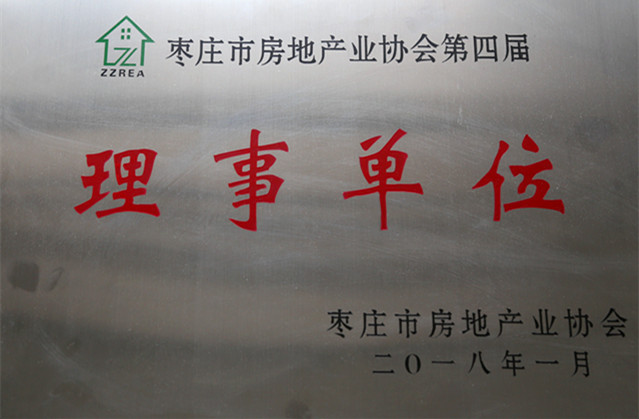 枣庄市房地产业协会第四届
ZZREA
理事单位
枣庄市房地产业协会
二〇一八年一月